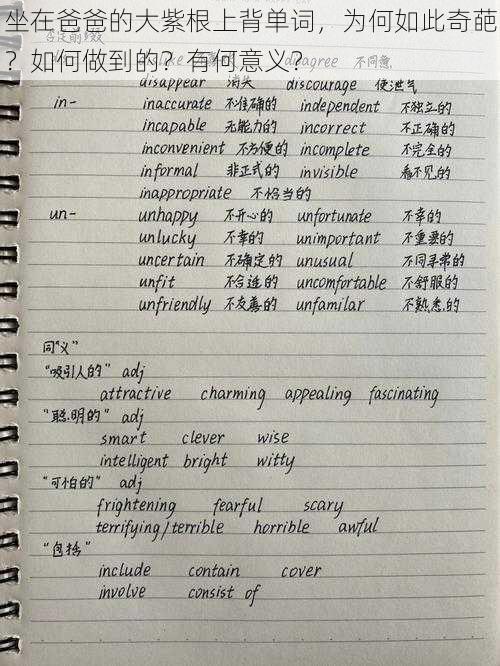 坐在爸爸的大紫根上背单词，为何如此奇葩
？如何做到的？有何意义？
disagree 不同意
disappear 消失 discourage 使泄气
in- inaccurate 不准确的 independent 不独立的
incapable 无能力的 incorrect 不正确的
inconvenient 不方便的 incomplete 不完全的
informal 非正式的 invisible 看不见的
inappropriate 不恰当的
un- unhappy 不开心的 unfortunate 不幸的
unlucky 不幸的 unimportant 不重要的
uncertain 不确定的 unusual 不同寻常的
unfit 不合适的 uncomfortable 不舒服的
unfriendly 不友善的 unfamilar 不熟悉的
同"义"
"吸引人的" adj
attractive charming appealing fascinating
"聪明的" adj
smart clever wise
intelligent bright witty
"可怕的" adj
frightening fearful scary
terrifying/terrible horrible awful
"包括"
include contain cover
involve consist of